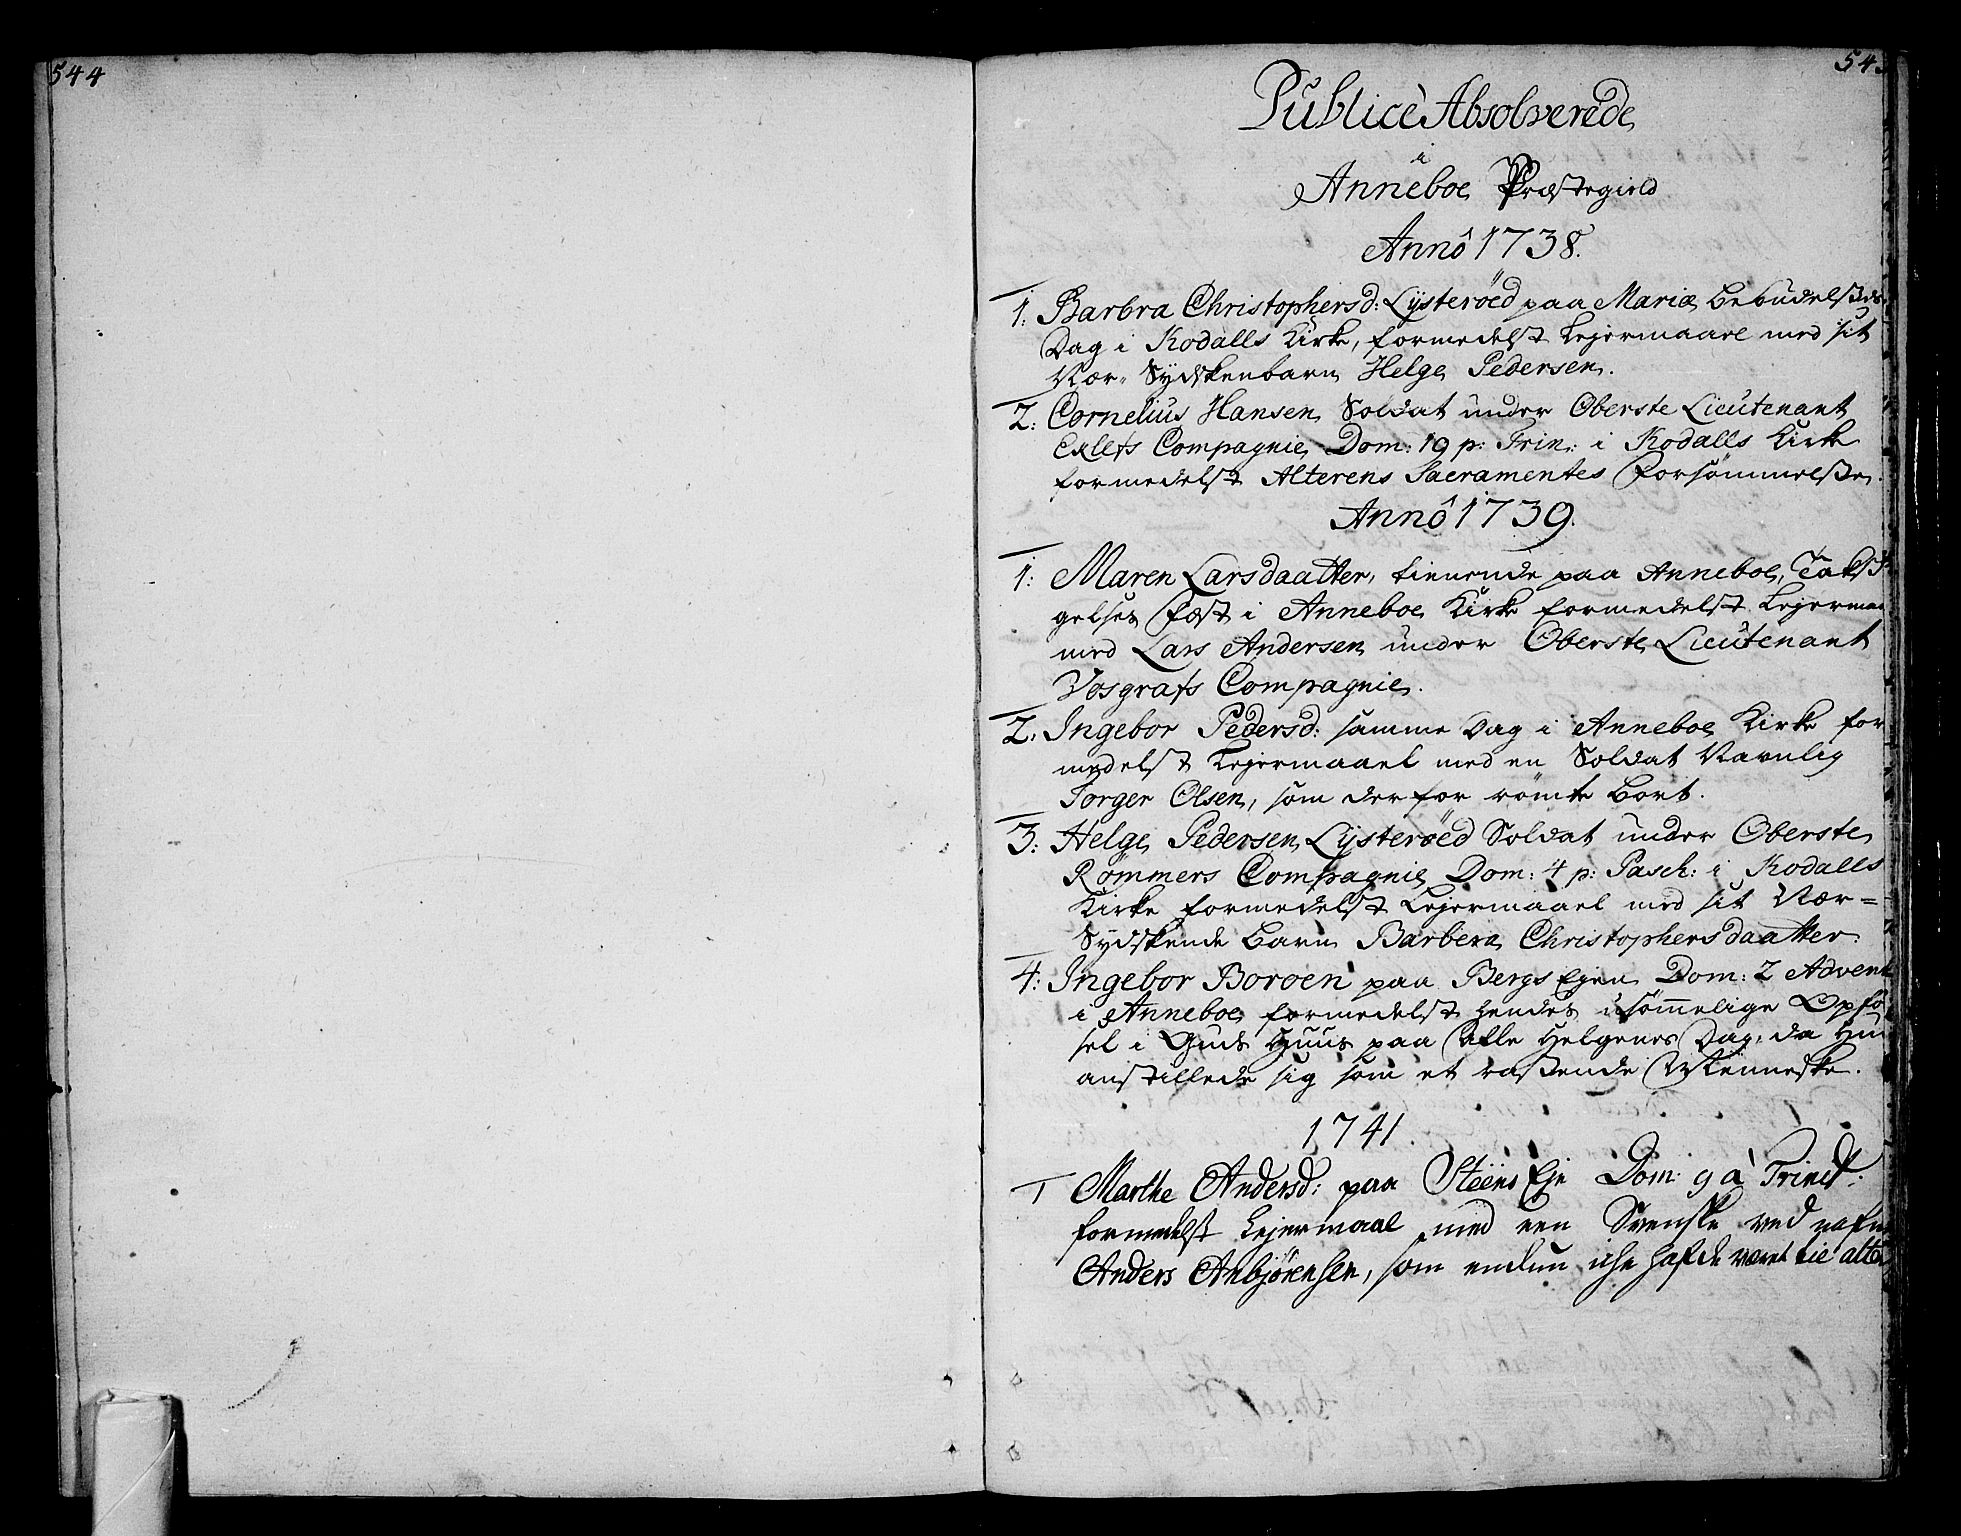 544
545
Publicè Absolverede
i
Anneboe Præstegield
Annô 1738.
1: Barbra Christophersd: Lÿsteröed paa Mariæ Bebudelsses
Dag i Kodalls Kirke, formedelst Lejermaael med sit
Nær-Sydskenbarn Helge Pedersen.
2: Cornelius Hansen Soldat under Oberste Lieutenant
Compagnie Dom: 19 p: Trin: i Kodalls Kirke
formedelst Alterens Sacramentes Forsömmelsse.
Annô 1739.
1: Maren Larsdaatter, tienende paa Anneboe, Taksi-
gelses Fæst i Anneboe Kirke formedelst Lejermaa
med Lars Andersen under Oberste Lieutenant
Vosgrafs Compagnie.
2: Ingebor Pedersd: samme Dag i Anneboe Kirke for
medelst Lejermaael med en Soldat Navnlig
Torger Olsen, som derfor römte bort.
3: Helge Pedersen Lÿsteröed Soldat under Oberste
Rømmers Compagnie Dom: 4 p: Pasch: i Kodalls
Kirke formedelst Lejermaael med sit Nær-
Sydskende barn Barbera Christophersdaatter.
4: Ingebor Boroen paa Bergs Ejen Dom: 2 Advent
i Anneboe formedelst hendes usömelige Opfö
sel i Guds Huus paa Alle Helgenes Dag, da Hun
anstillede sig som et rasende Menneske.
1741.
1 Marthe Andersd: paa Steens Eje Dom: 9 à Trinit:
formedelst Lejermaal med een Svenske ved nafn
Anders Anbjörensen, som endnu iche hafde været tie alter